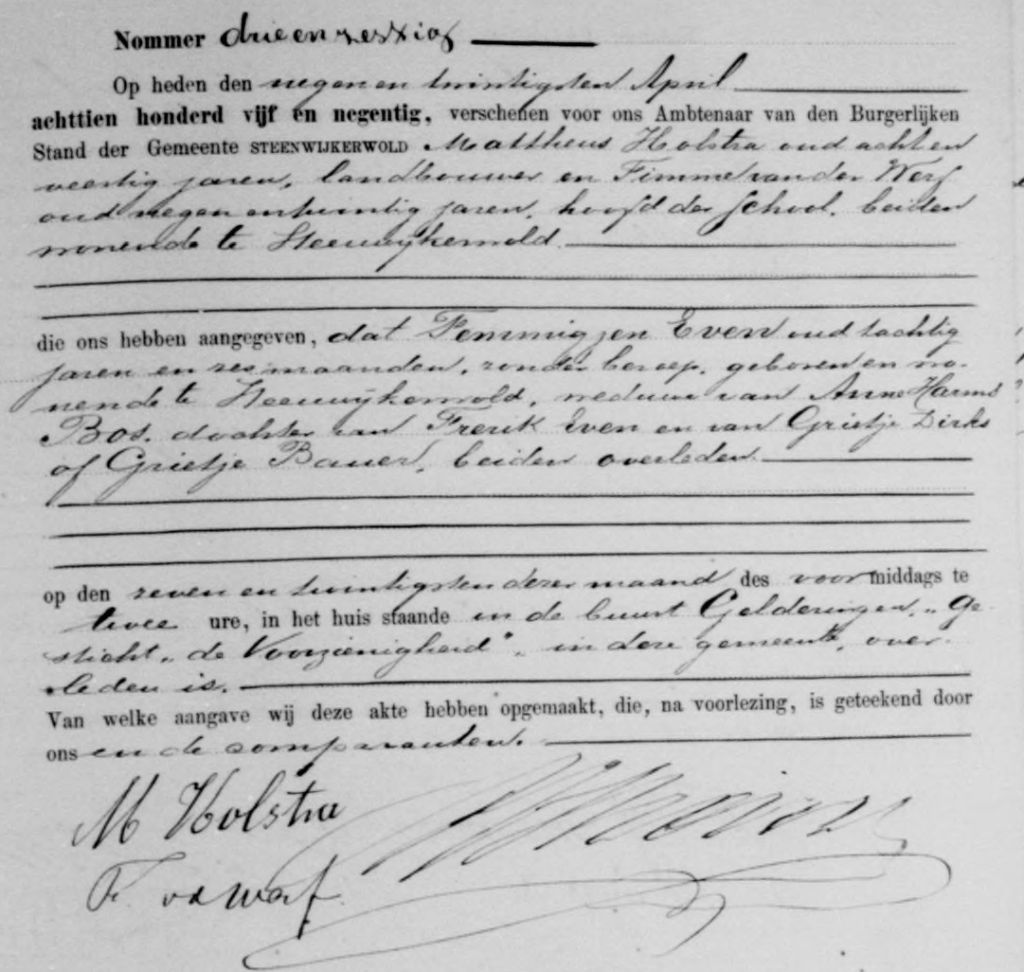 Nommer drie en zestig
Op heden den negen en twintigsten April
achttien honderd vijf en negentig, verschenen voor ons Ambtenaar van den Burgerlijken
Stand der Gemeente STEENWIJKERWOLD Mattheus Holstra oud acht en
veertig jaren, landbouwer en Fimme van der Werf
oud negen en twintig jaren, hoofd der school, beiden
wonende te Steenwijkerwold.
die ons hebben aangegeven, dat Femmigjen Even oud tachtig
jaren en zes maanden, zonder beroep, geboren en wo-
nende te Steenwijkerwold, weduwe van Anne Harms
Bos, dochter van Frerik Even en van Grietje Dirks
of Grietje Bauer, beiden overleden.
op den zeven en twintigsten dezer maand des voormiddags te
twee ure, in het huis staande in de buurt Gelderingen, „Ge-
sticht „de Voorzienigheid", in deze gemeente, over-
leden is.
Van welke aangave wij deze akte hebben opgemaakt, die, na voorlezing, is geteekend door
ons en de comparanten.
M Holstra
F. vd Werf.